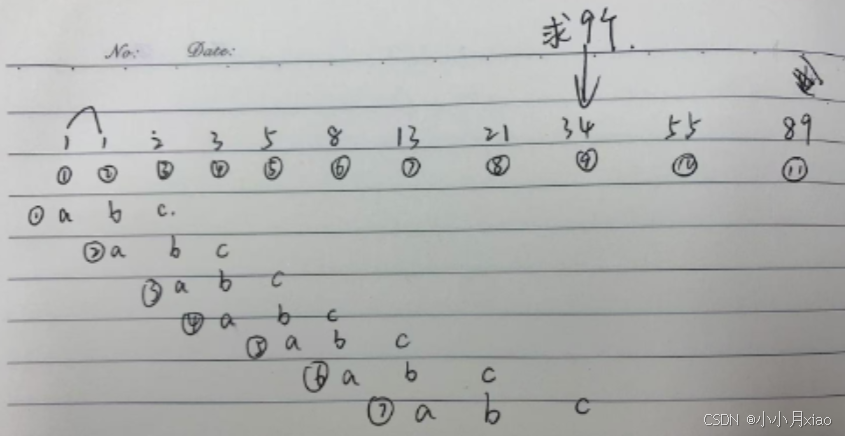 求9个.
No: Date:
1 1 2 3 5 8 13 21 34 55 89
① ② ③ ④ ⑤ ⑥ ⑦ ⑧ ⑨ ⑩ ⑪
① a b c.
② a b c
③ a b c
④ a b c
⑤ a b c
⑥ a b c
⑦ a b c
CSDN @小小月xiao